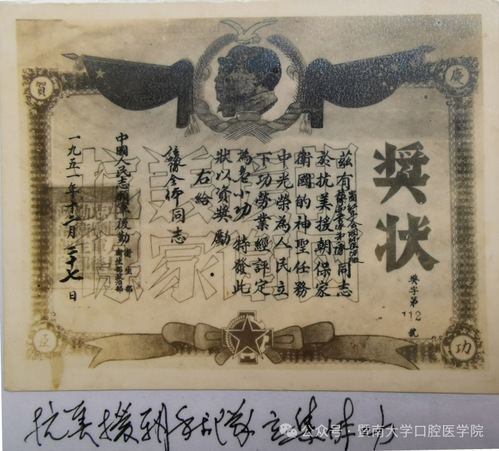 慶
賀
功
臣
獎狀
獎字第
112
號
茲有 同志
於抗美援朝保家
衛國的神聖任務
中光榮為人民立
下功勞業經評定
為 小功 特發此
狀以資獎勵
右給
同志
中國人民志願軍後勤
衛生部
政治部
一九五一年十二月二十七日
抗美援朝手術隊立集体功
公众号：暨南大学口腔医学院